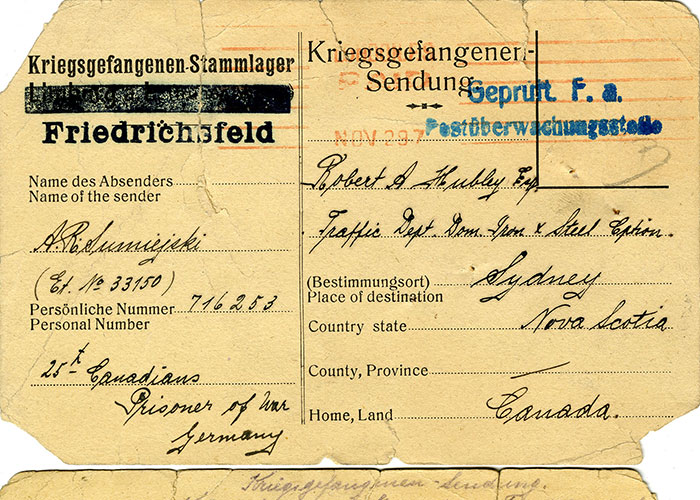 Kriegsgefangenen-Stammlager
Friedrichsfeld
Name des Absenders
Name of the sender
A.R. Sumiejski
(Et. No 33150)
Persönliche Nummer 716253
Personal Number
25th Canadians
Prisoner of War
Germany
Kriegsgefangenen-
Sendung.
Geprüft. F. a.
Postüberwachungsstelle
NOV 29
Robert A Hubley Esq.
Traffic Dept. Dom. Iron & Steel
Sydney
(Bestimmungsort)
Place of destination
Nova Scotia
Country state
County, Province —
Home, Land Canada.
Kriegsgefangenen-Sendung.